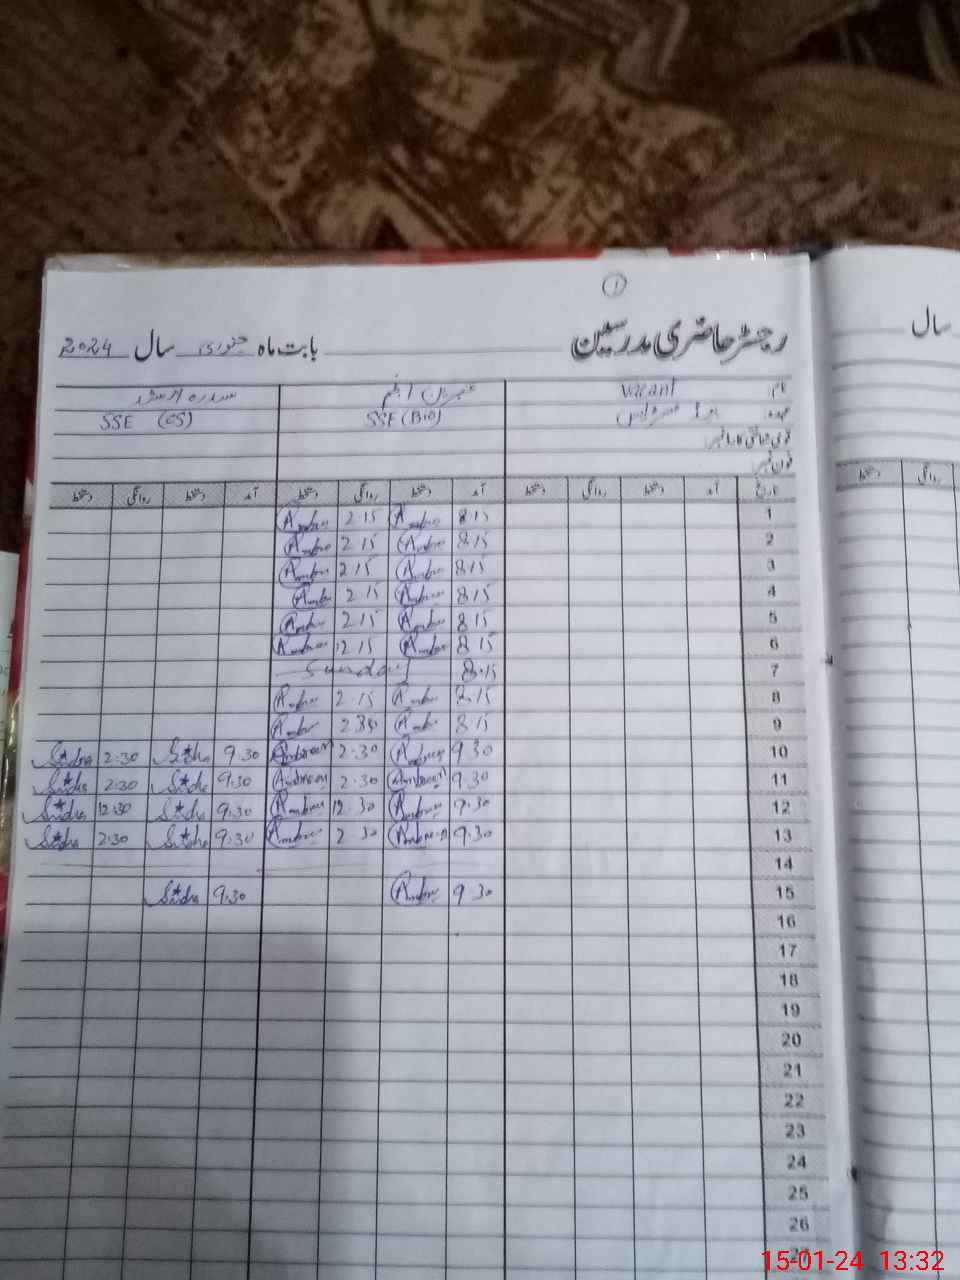 1
رجسٹر حاضری مدرسین بابت ماہ جنوری سال 2024
سال
نام Vacant عنبرین انجم سدرہ ارشد
عہدہ SSE (Bio) SSE (CS)
قومی شناختی کارڈ نمبر
فون نمبر
تاریخ آمد دستخط روانگی دستخط آمد دستخط روانگی دستخط آمد دستخط روانگی دستخط
روانگی دستخط
1 8.15 Ambreen 2.15 Ambreen
2 8.15 Ambreen 2.15 Ambreen
3 8.15 Ambreen 2.15 Ambreen
4 8.15 Ambreen 2.15 Ambreen
5 8.15 Ambreen 2.15 Ambreen
6 8.15 Ambreen 12.15 Ambreen
7 8.15 Sunday
8 8.15 Ambreen 2.15 Ambreen
9 8.15 Ambreen 2.30 Ambreen
10 9.30 Ambreen 2.30 Ambreen 9.30 Sidra 2.30 Sidra
11 9.30 Ambreen 2.30 Ambreen 9.30 Sidra 2.30 Sidra
12 9.30 Ambreen 12.30 Ambreen 9.30 Sidra 12.30 Sidra
13 9.30 Ambreen 2.30 Ambreen 9.30 Sidra 2.30 Sidra
14
15 9.30 Ambreen 9.30 Sidra
16
17
18
19
20
21
22
23
24
25
26
27
15-01-24 13:32